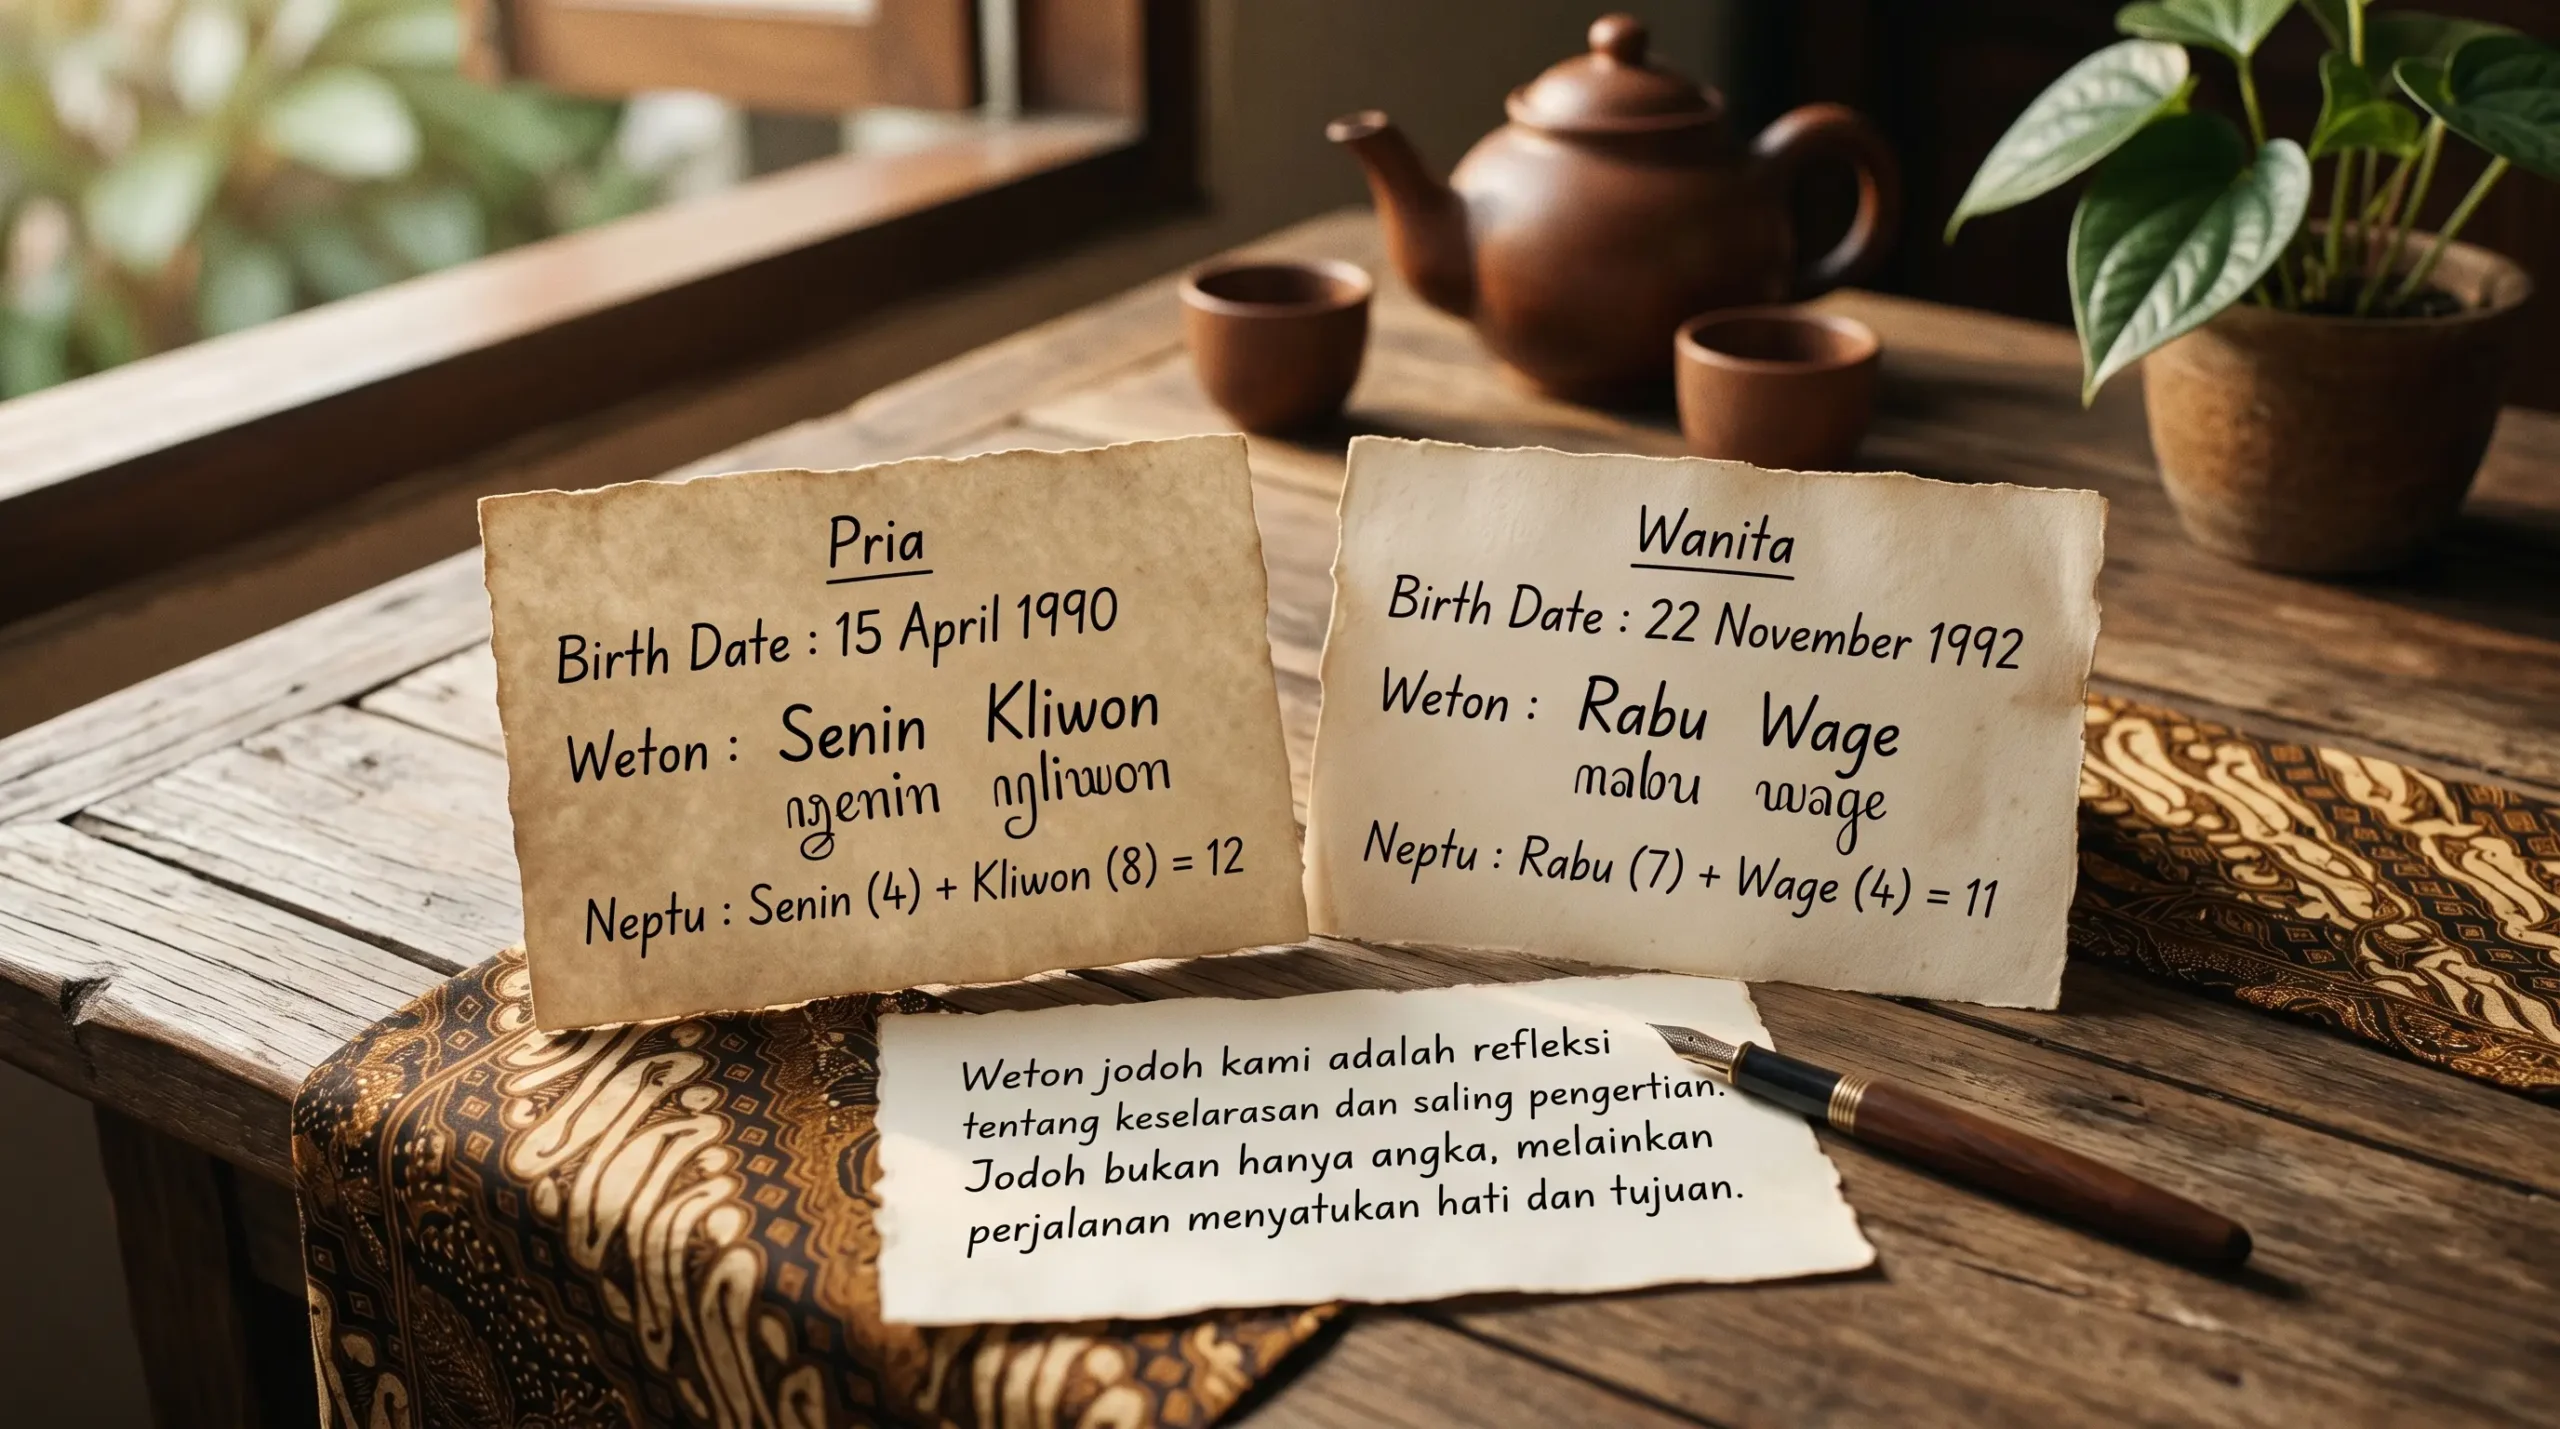 Pria
Birth Date : 15 April 1990
Weton : Senin Kliwon
Neptu : Senin (4) + Kliwon (8) = 12
Wanita
Birth Date : 22 November 1992
Weton : Rabu Wage
mabu wage
Neptu : Rabu (7) + Wage (4) = 11
Weton jodoh kami adalah refleksi
tentang keselarasan dan saling pengertian.
Jodoh bukan hanya angka, melainkan
perjalanan menyatukan hati dan tujuan.